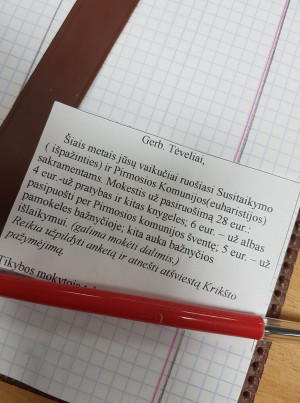 Gerb. Tėveliai,
Šiais metais jūsų vaikučiai ruošiasi Susitaikymo
( išpažinties) ir Pirmosios Komunijos(euharistijos)
sakramentams. Mokestis už pasiruošimą 28 eur.:
4 eur.-už pratybas ir kitas knygeles; 6 eur. – už albas
pasipuošti per Pirmosios komunijos šventę; 5 eur. – už
pamokėles bažnyčioje; kita auka bažnyčios
išlaikymui. (galima mokėti dalimis.)
Reikia užpildyti anketą ir atnešti atšviestą Krikšto
pažymėjimą,
Tikybos